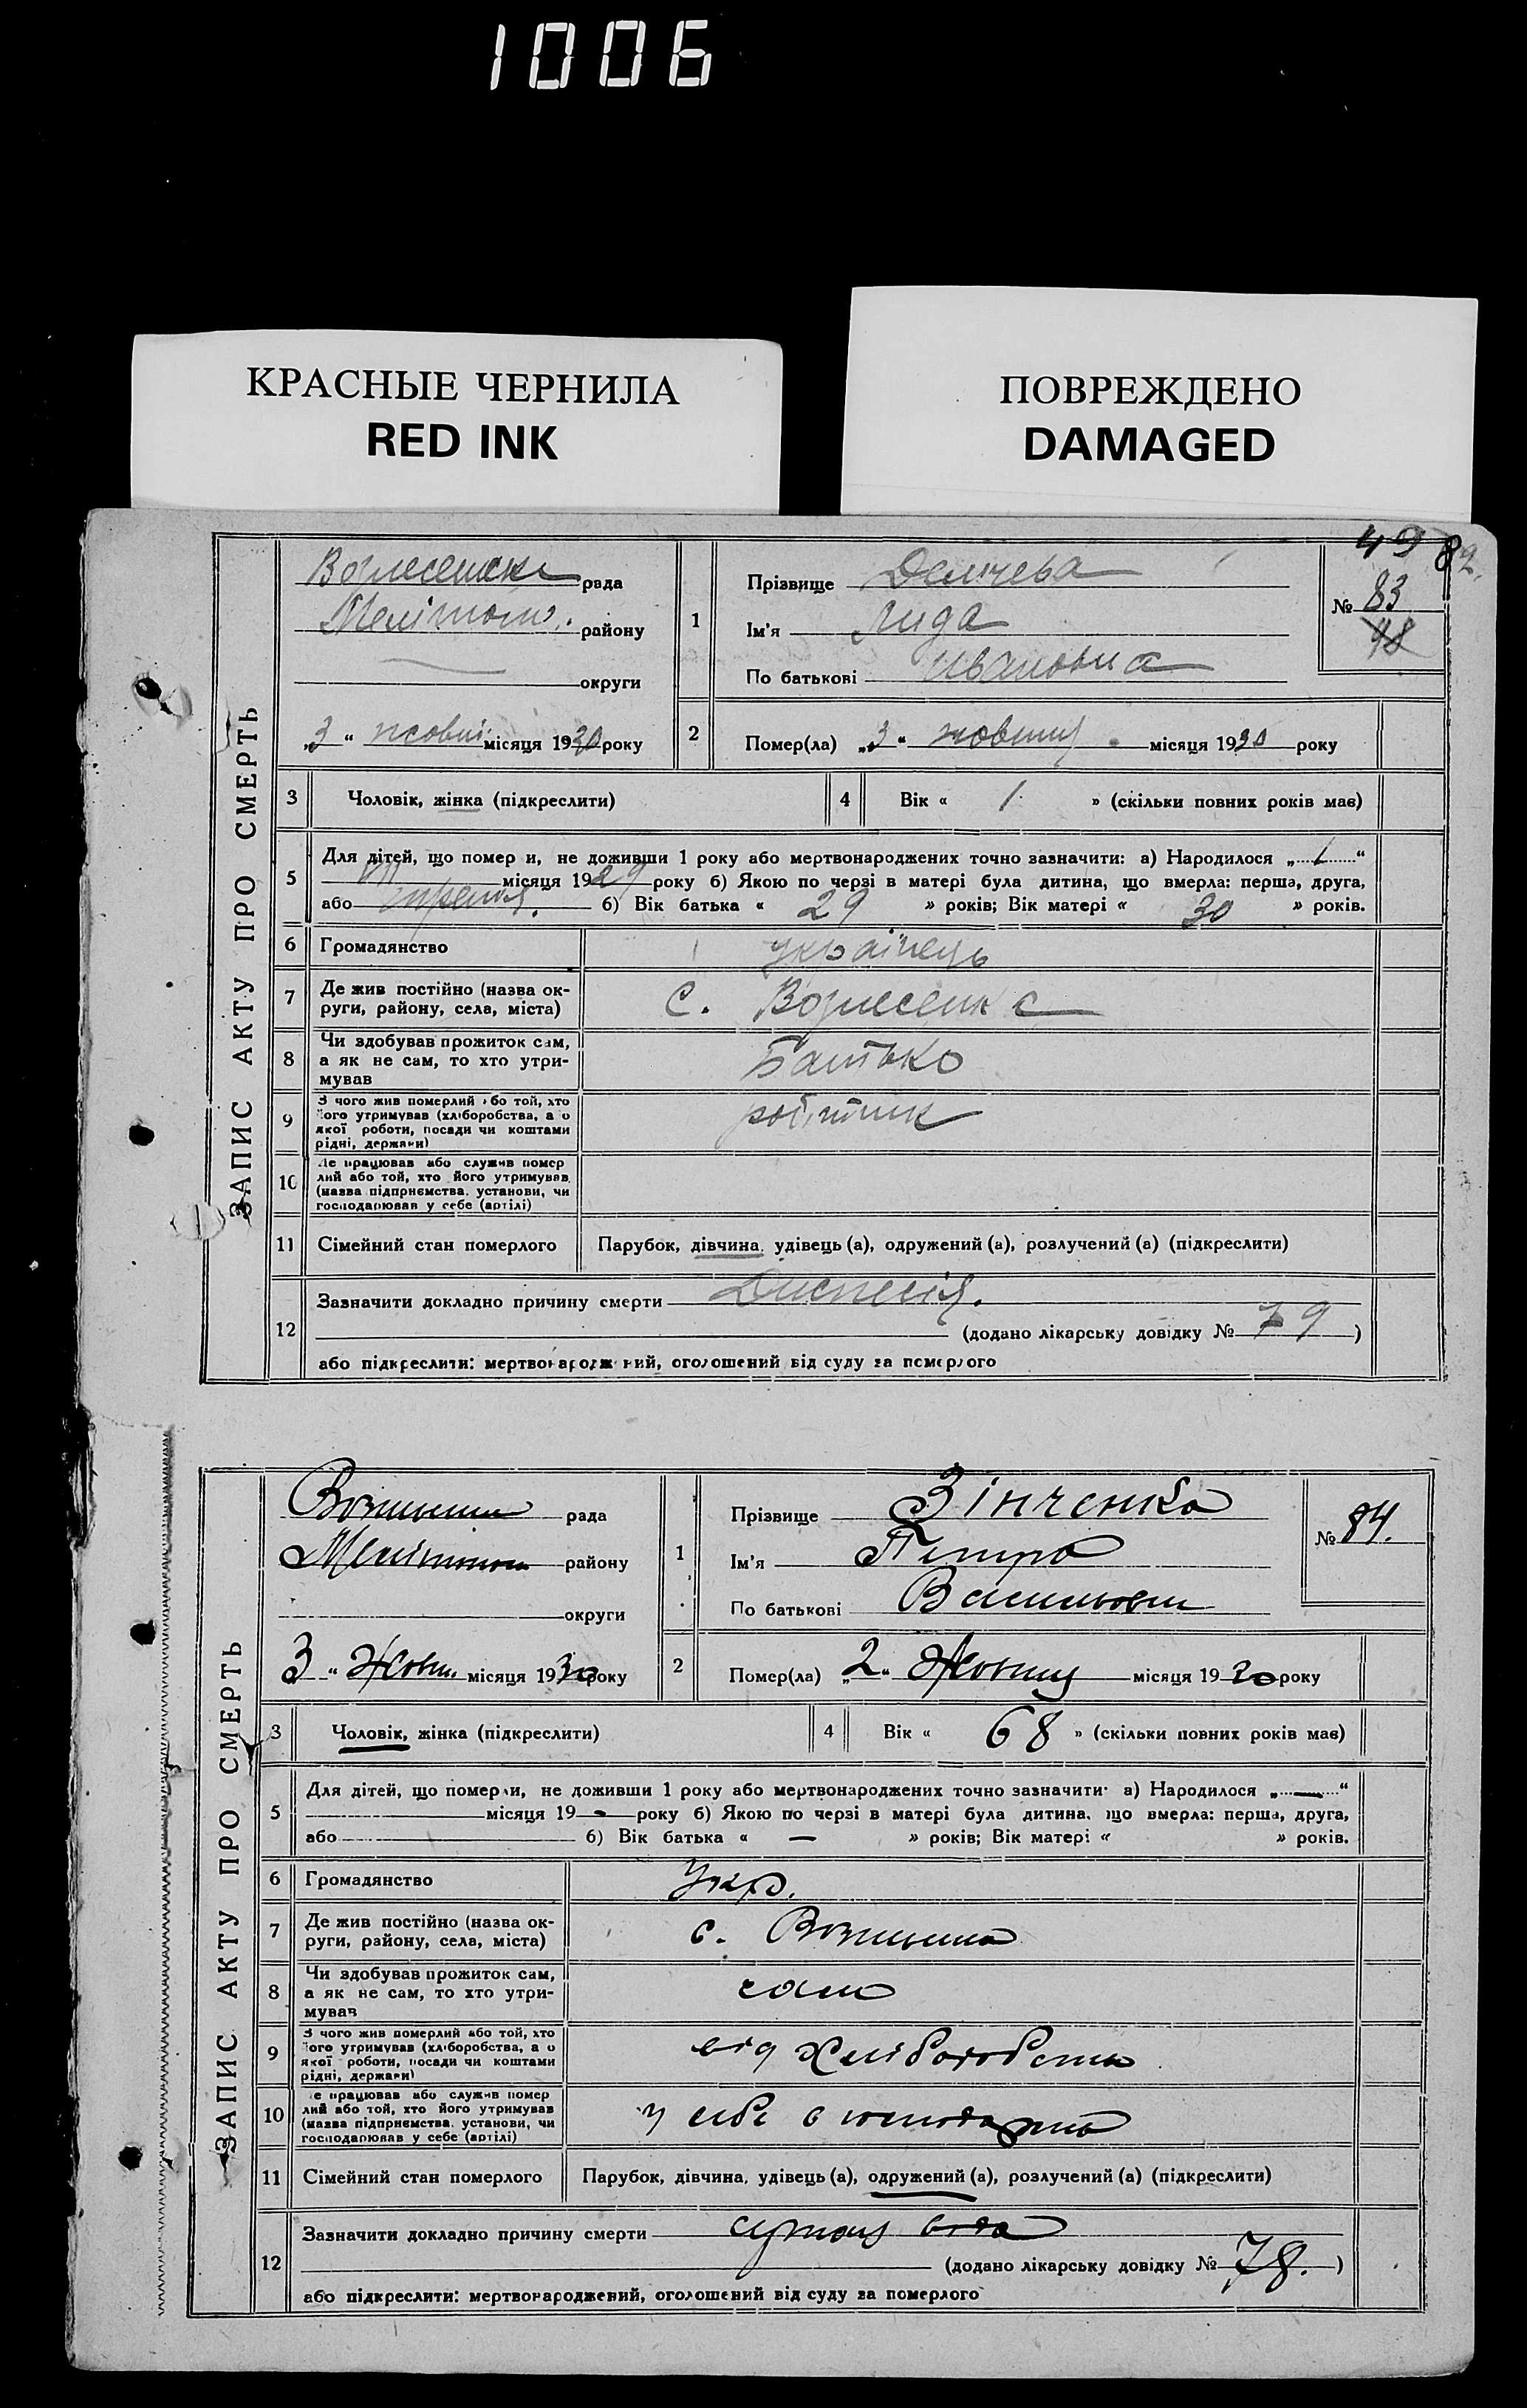 1006
КРАСНЫЕ ЧЕРНИЛА
RED INK
ПОВРЕЖДЕНО
DAMAGED
49 82
ЗАПИС АКТУ ПРО СМЕРТЬ
рада
Мелітоп. району
округи
„3“ жовтн місяця 1930 року
1
Прізвище
Ім'я Лида
По батькові Ивановна
№ 83
48
2
Помер(ла) „3“ жовтня місяця 1930 року
3 Чоловік, жінка (підкреслити)
4 Вік « 1 » (скільки повних років має)
5 Для дітей, що помер и, не доживши 1 року або мертвонароджених точно зазначити: а) Народилося „1“
VII місяця 1929 року б) Якою по черзі в матері була дитина, що вмерла: перша, друга,
або третя. б) Вік батька « 29 » років; Вік матері « 30 » років.
6 Громадянство українець
7 Де жив постійно (назва ок-
руги, району, села, міста) С. Вознесенка
8 Чи здобував прожиток сам,
а як не сам, то хто утри-
мував Батько
9 З чого жив померлий або той, хто
його утримував (хліборобства, а о
якої роботи, посади чи коштами
рідні, держави) робітник
10 Де працював або служив помер
лий або той, хто його утримував
(назва підприємства, установи, чи
господарював у себе (артілі)
11 Сімейний стан померлого Парубок, дівчина, удівець (а), одружений (а), розлучений (а) (підкреслити)
12 Зазначити докладно причину смерти Диспесія.
(додано лікарську довідку № 79)
або підкреслити: мертвонароджений, оголошений від суду за померлого
ЗАПИС АКТУ ПРО СМЕРТЬ
рада
району
округи
3 “ Жовтн. місяця 1930 року
1
Прізвище Зінченко
Ім'я Петро
По батькові Васильович
№ 84.
2
Помер(ла) „2“ Жовтня місяця 1930 року
3 Чоловік, жінка (підкреслити)
4 Вік « 68 » (скільки повних років має)
5 Для дітей, що померли, не доживши 1 року або мертвонароджених точно зазначити: а) Народилося „—“
місяця 19 - року б) Якою по черзі в матері була дитина, що вмерла: перша, друга,
або б) Вік батька « — » років; Вік матері « » років.
6 Громадянство Укр.
7 Де жив постійно (назва ок-
руги, району, села, міста) с. Вознесенка
8 Чи здобував прожиток сам,
а як не сам, то хто утри-
мував сам
9 З чого жив померлий або той, хто
його утримував (хліборобства, а о
якої роботи, посади чи коштами
рідні, держави) від Хліборобства
10 Де працював або служив помер
лий або той, хто його утримував
(назва підприємства, установи, чи
господарював у себе (артілі) у себе в господарстві
11 Сімейний стан померлого Парубок, дівчина, удівець (а), одружений (а), розлучений (а) (підкреслити)
12 Зазначити докладно причину смерти
(додано лікарську довідку № 78.)
або підкреслити: мертвонароджений, оголошений від суду за померлого